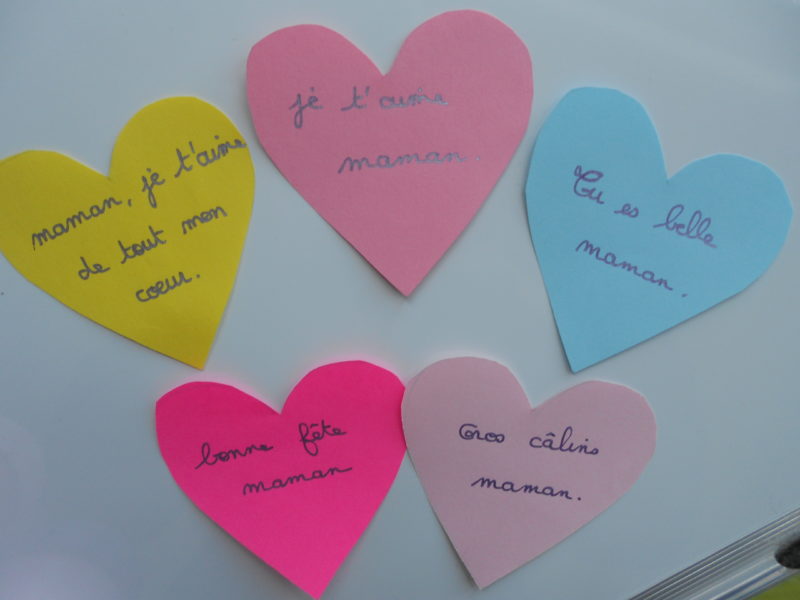 maman, je t'aime
de tout mon
coeur.
je t'aime
maman.
Tu es belle
maman.
bonne fête
maman
Gros câlins
maman.